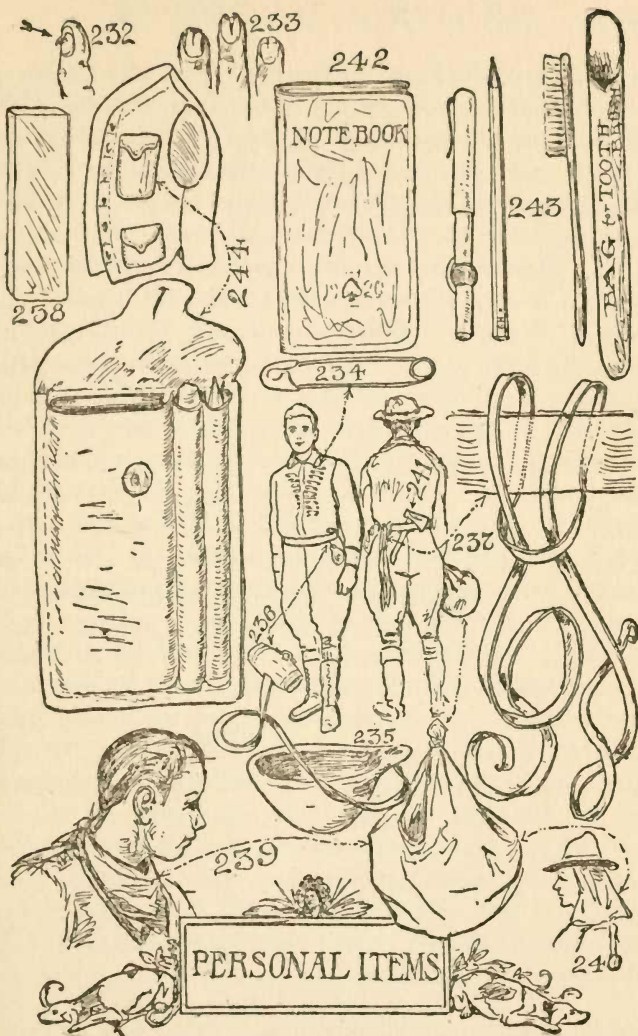 232
233
242
NOTE BOOK
243
BAG for TOOTH BRUSH
244
258
19 20
234
241
237
236
235
239
240
PERSONAL ITEMS